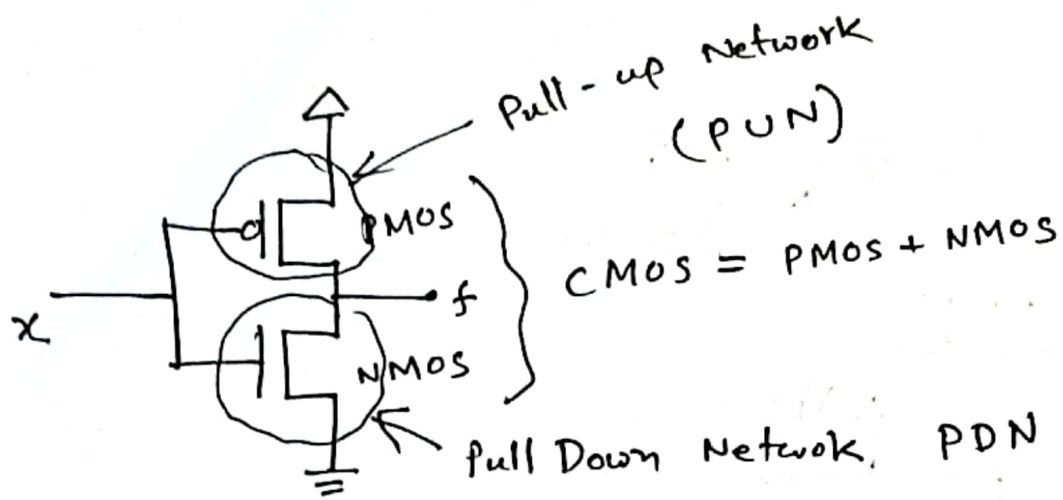 Pull-up Network
(PUN)
PMOS
CMOS = PMOS + NMOS
x
f
NMOS
Pull Down Netwok. PDN